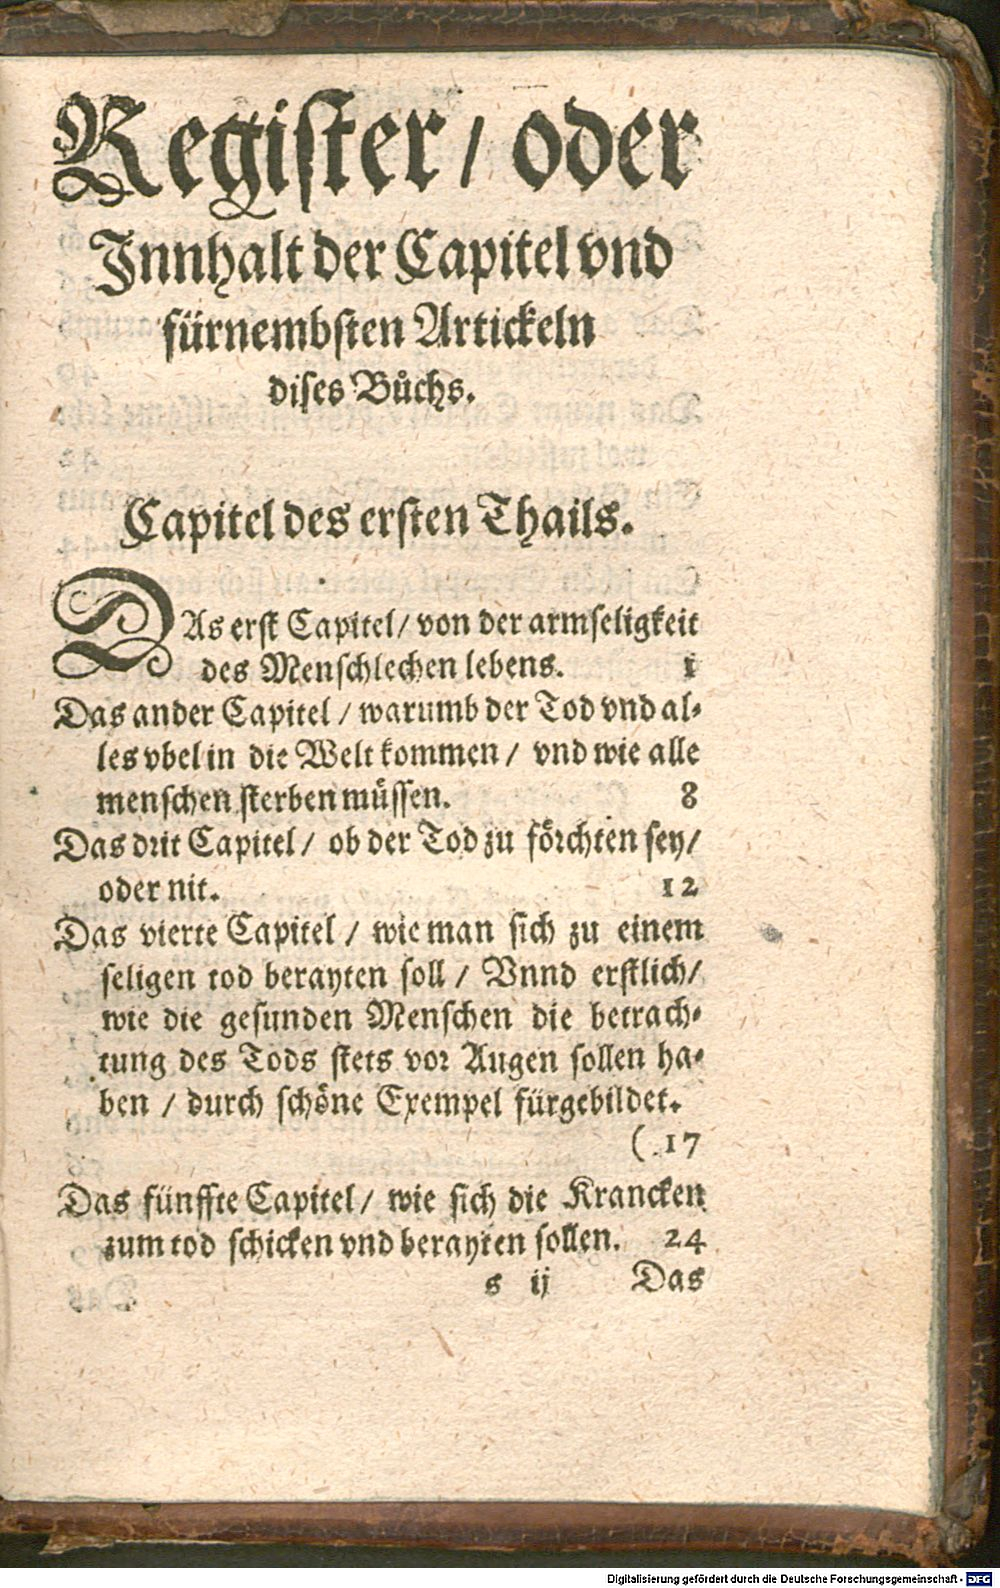 Regiſter/ oder
Innhalt der Capitel vnd
fürnembſten Artickeln
diſes Bůchs.
Capitel des erſten Thails.
DAs erſt Capitel/ von der armſeligkeit
des Menſchlechen lebens. 1
Das ander Capitel / warumb der Tod vnd al-
les vbel in die Welt kommen / vnd wie alle
menſchen ſterben müſſen. 8
Das drit Capitel/ ob der Tod zu förchten ſey/
oder nit. 12
Das vierte Capitel / wie man ſich zu einem
ſeligen tod berayten ſoll / Vnnd erſtlich/
wie die geſunden Menſchen die betrach-
tung des Tods ſtets vor Augen ſollen ha-
ben / durch ſchöne Exempel fürgebildet.
( 17
Das fünffte Capitel/ wie ſich die Krancken
zum tod ſchicken vnd berayten ſollen. 24
s ij Das
Digitalisierung gefördert durch die Deutsche Forschungsgemeinschaft - DFG